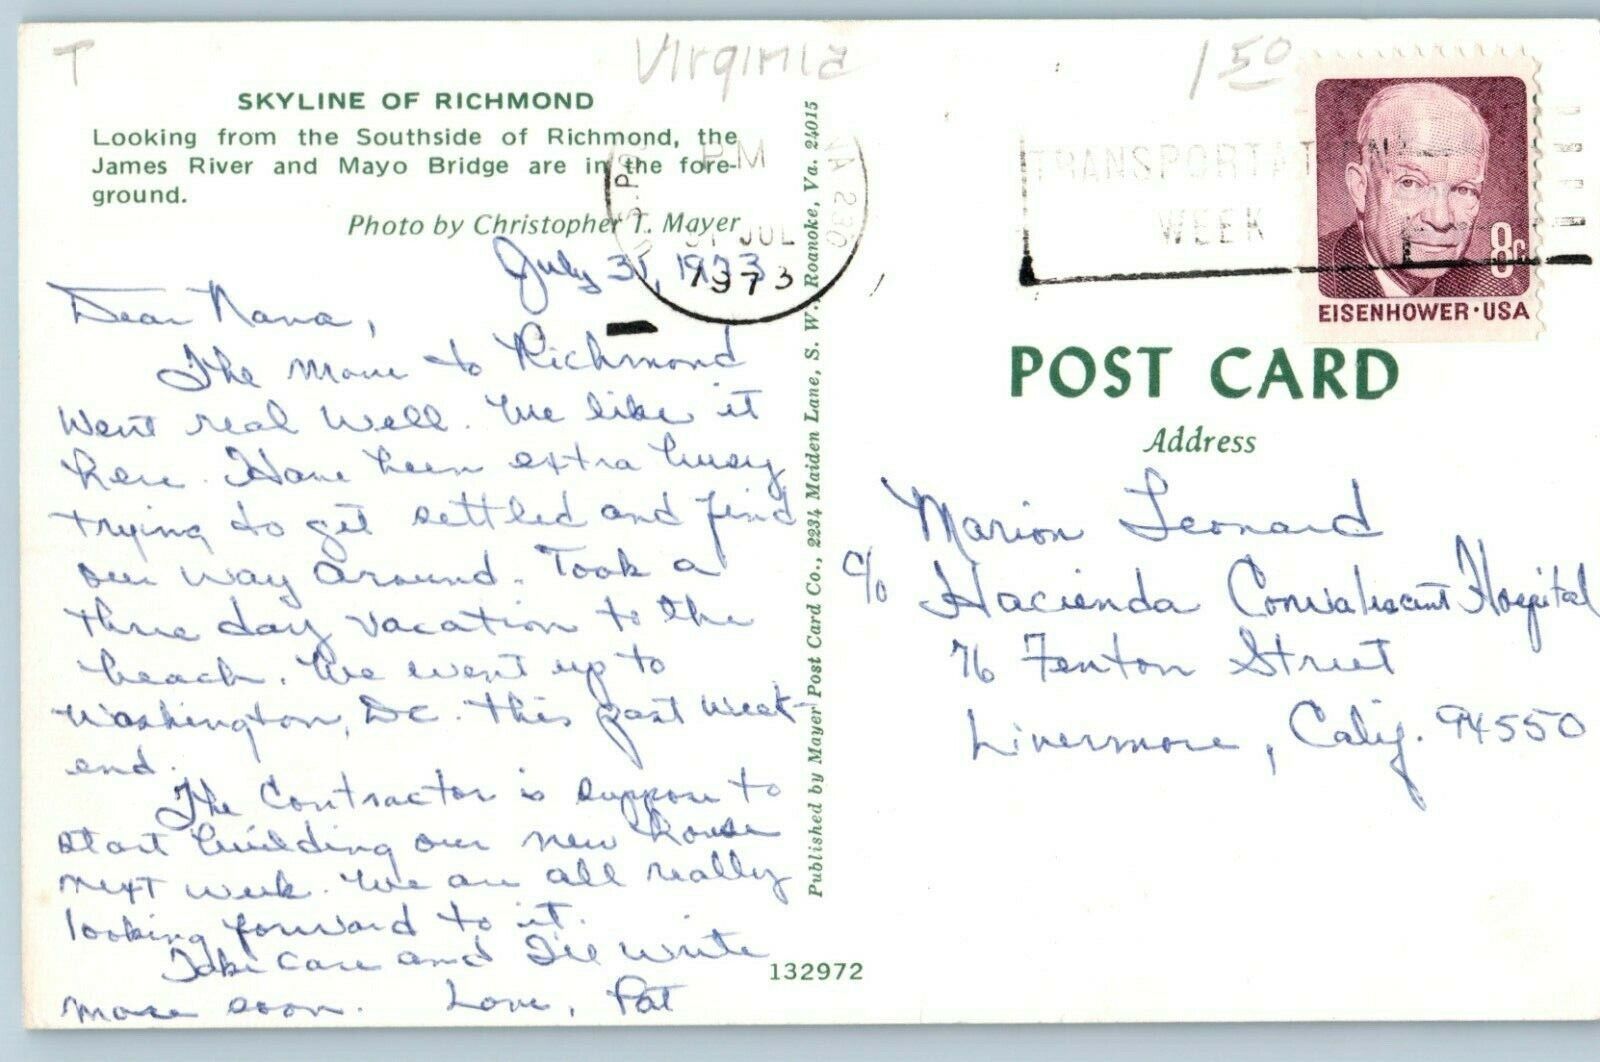 T
Virginia
1 50
SKYLINE OF RICHMOND
Looking from the Southside of Richmond, the
James River and Mayo Bridge are in the fore-
ground.
Photo by Christopher T. Mayer
PM
VA 230
31 JUL
1973
TRANSPORTATION
WEEK
8c
EISENHOWER·USA
July 31, 1973
Dear Nana,
The move to Richmond
went real well. We like it
here. Have been extra busy
trying to get settled and find
our way around. Took a
three day vacation to the
beach. We went up to
Washington, DC. this past week-
end.
The Contractor is suppose to
start building our new house
next week. We are all really
looking forward to it.
Take care and I'll write
more soon. Love, Pat
Published by Mayer Post Card Co., 2234 Maiden Lane, S. W., Roanoke, Va. 24015
132972
POST CARD
Address
Marion Leonard
c/o Hacienda Convalescent Hospital
76 Fenton Street
Livermore, Calif. 94550